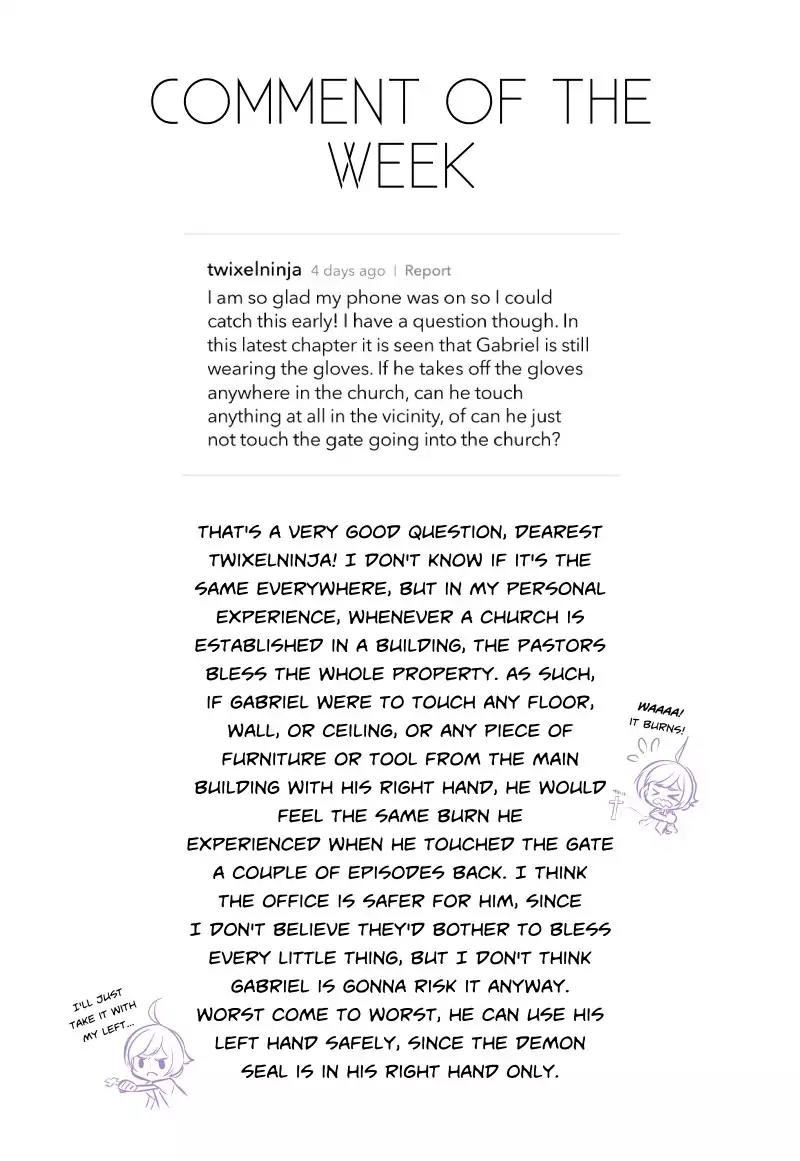 COMMENT OF THE
WEEK
twixelninja 4 days ago | Report
I am so glad my phone was on so I could
catch this early! I have a question though. In
this latest chapter it is seen that Gabriel is still
wearing the gloves. If he takes off the gloves
anywhere in the church, can he touch
anything at all in the vicinity, of can he just
not touch the gate going into the church?
THAT'S A VERY GOOD QUESTION, DEAREST
TWIXELNINJA! I DON'T KNOW IF IT'S THE
SAME EVERYWHERE, BUT IN MY PERSONAL
EXPERIENCE, WHENEVER A CHURCH IS
ESTABLISHED IN A BUILDING, THE PASTORS
BLESS THE WHOLE PROPERTY. AS SUCH,
IF GABRIEL WERE TO TOUCH ANY FLOOR,
WALL, OR CEILING, OR ANY PIECE OF
FURNITURE OR TOOL FROM THE MAIN
BUILDING WITH HIS RIGHT HAND, HE WOULD
FEEL THE SAME BURN HE
EXPERIENCED WHEN HE TOUCHED THE GATE
A COUPLE OF EPISODES BACK. I THINK
THE OFFICE IS SAFER FOR HIM, SINCE
I DON'T BELIEVE THEY'D BOTHER TO BLESS
EVERY LITTLE THING, BUT I DON'T THINK
GABRIEL IS GONNA RISK IT ANYWAY.
WORST COME TO WORST, HE CAN USE HIS
LEFT HAND SAFELY, SINCE THE DEMON
SEAL IS IN HIS RIGHT HAND ONLY.
WAAAA!
IT BURNS!
I'LL JUST
TAKE IT WITH
MY LEFT...